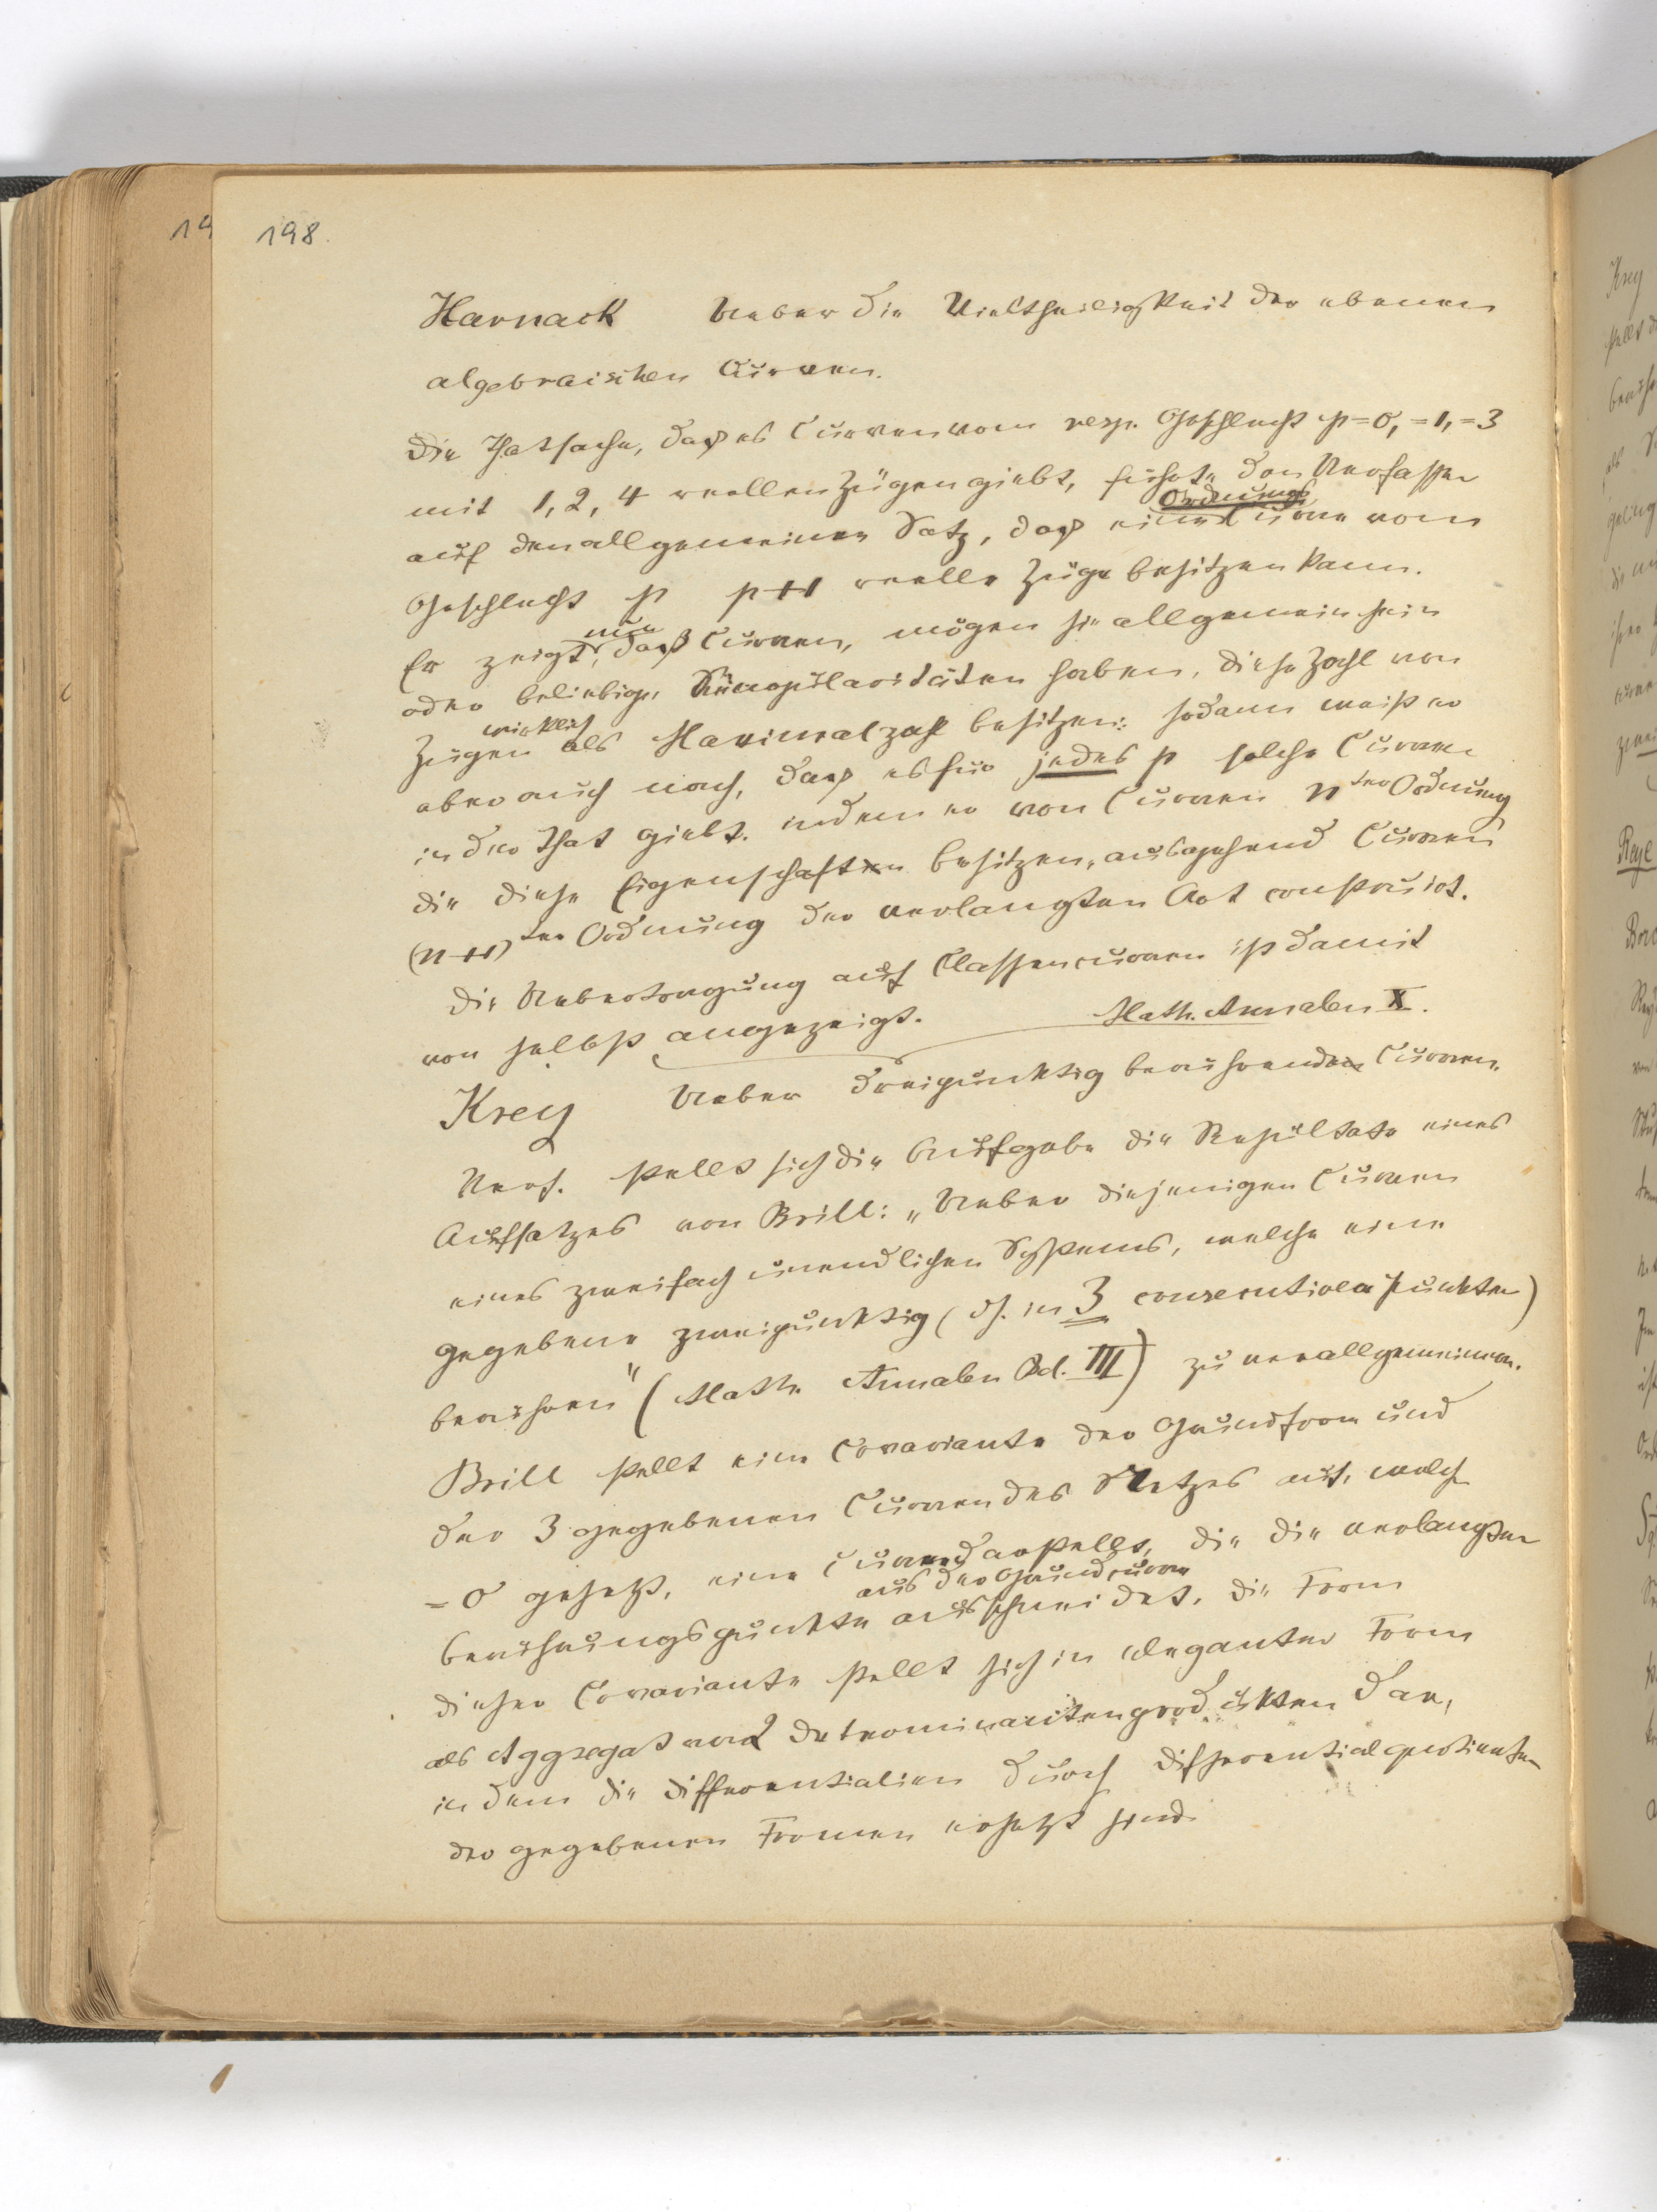 198.
19
Harnack Ueber die Vieltheiligkeit der ebenen
algebraischen Curven.
Die Thatsache, daß es Curven vom resp. Geschlecht p=0, =1, =3
mit 1, 2, 4 reellen Zügen giebt, führte den Verfasser
auf den allgemeinen Satz, daß eine Ordnungs Curve vom
Geschlecht p p+1 reelle Züge besitzen kann.
Er zeigt nun, daß Curven, mögen sie allgemein sein
oder beliebige Singularitäten haben, diese Zahl von
Zügen wirklich als Maximalzahl besitzen: sodann weist er
aber auch nach, daß es für jedes p solche Curven
in der That giebt. indem er von Curven nter Ordnung
die diese Eigenschaften besitzen, ausgehend Curven
(n+1)ter Ordnung der verlangten Art construirt.
Die Uebertragung auf Classencurven ist damit
von selbst angezeigt. Math. Annalen X.
Krey Ueber dreipunktig berührende Curven.
Verf. stellt sich die Aufgabe die Resultate eines
Aufsatzes von Brill: „Ueber diejenigen Curven
eines zweifach unendlichen Systems, welche eine
gegebene zweipunktig (dh. in 3 consecutiven Punkten)
berühren" (Math. Annalen Bd. III) zu verallgemeinern.
Brill stellt eine Covariante der Grundform und
der 3 gegebenen Curven des Netzes auf, welche
=0 gesetzt, eine Curve darstellt, die die verlangten
Berührungspunkte aus der Grundcurve ausschneidet. Die Form
dieser Covariante stellt sich in eleganter Form
als Aggregat von 2 Determinantenprodukten dar,
in dem die Differentialien durch Differentialquotienten
der gegebenen Formen ersetzt sind.